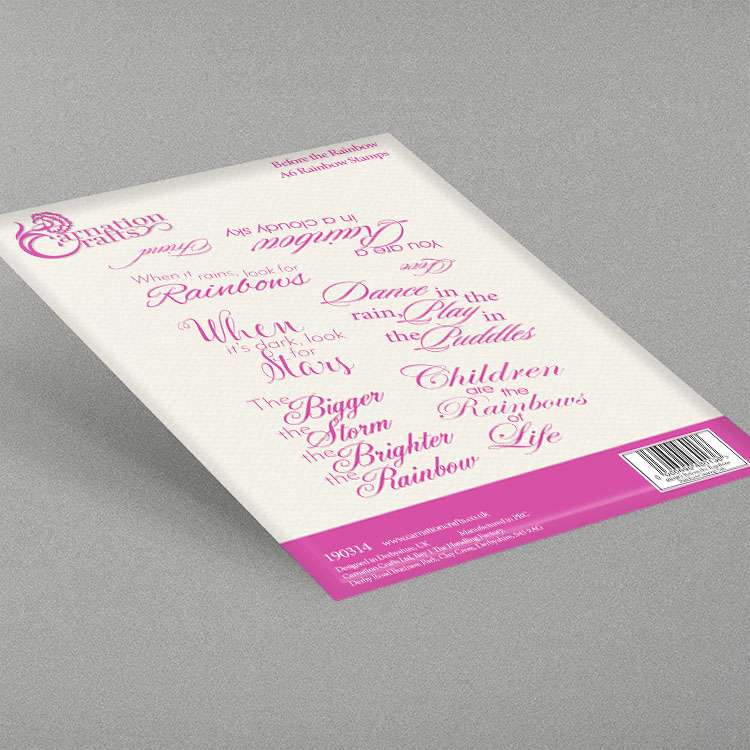 Before the Rainbow
A6 Rainbow Stamps
Carnation
Crafts
Friend
You are a
Rainbow
in a cloudy sky
Love
When it rains, look for
Rainbows
Dance in the
rain, Play in
the Puddles
When
it's dark, look
for
Stars
Children
are the
Rainbows
of
Life
The Bigger
the Storm
the Brighter
the Rainbow
190314
www.carnationcrafts.co.uk
Designed in Derbyshire, UK
Manufactured in PRC
Carnation Crafts Ltd, Bay 1, The Handling Factory,
Derby Road Business Park, Clay Cross, Derbyshire, S45 9AG